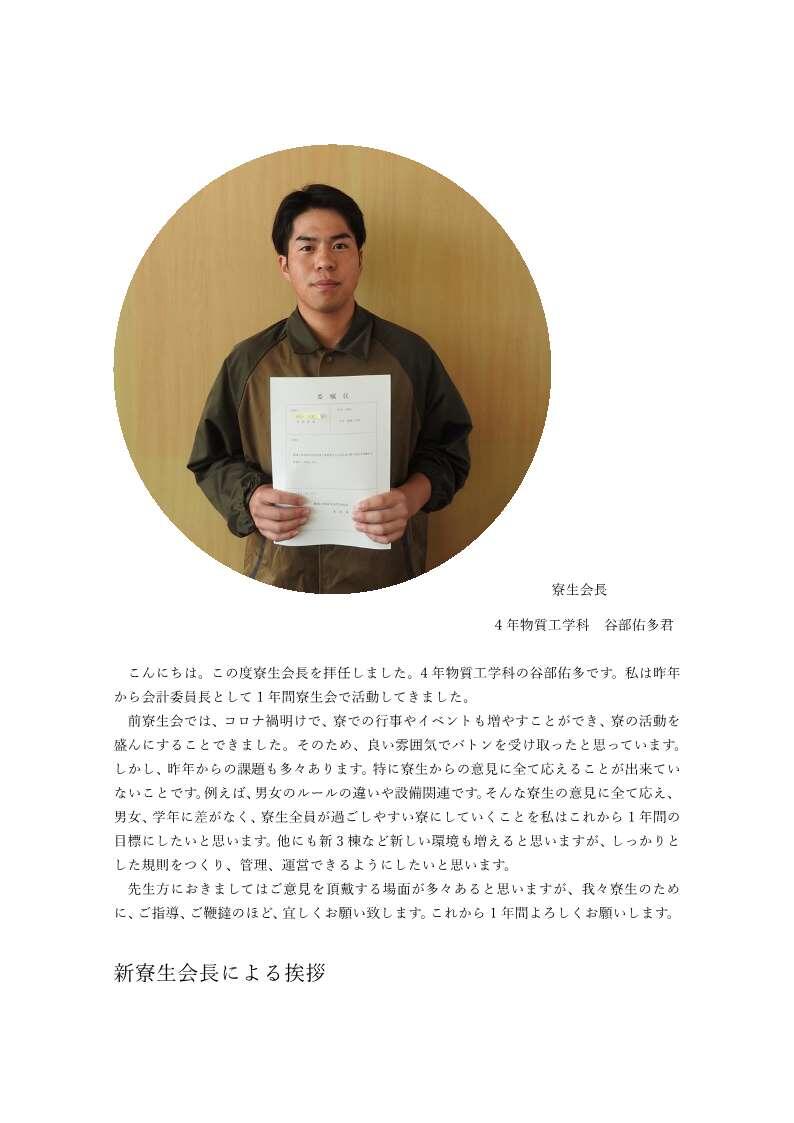 委嘱状
寮生会長
4年物質工学科　谷部佑多君
こんにちは。この度寮生会長を拝任しました。4年物質工学科の谷部佑多です。私は昨年
から会計委員長として1年間寮生会で活動してきました。
前寮生会では、コロナ禍明けで、寮での行事やイベントも増やすことができ、寮の活動を
盛んにすることできました。そのため、良い雰囲気でバトンを受け取ったと思っています。
しかし、昨年からの課題も多々あります。特に寮生からの意見に全て応えることが出来てい
ないことです。例えば、男女のルールの違いや設備関連です。そんな寮生の意見に全て応え、
男女、学年に差がなく、寮生全員が過ごしやすい寮にしていくことを私はこれから1年間の
目標にしたいと思います。他にも新3棟など新しい環境も増えると思いますが、しっかりと
した規則をつくり、管理、運営できるようにしたいと思います。
先生方におきましてはご意見を頂戴する場面が多々あると思いますが、我々寮生のため
に、ご指導、ご鞭撻のほど、宜しくお願い致します。これから1年間よろしくお願いします。
新寮生会長による挨拶